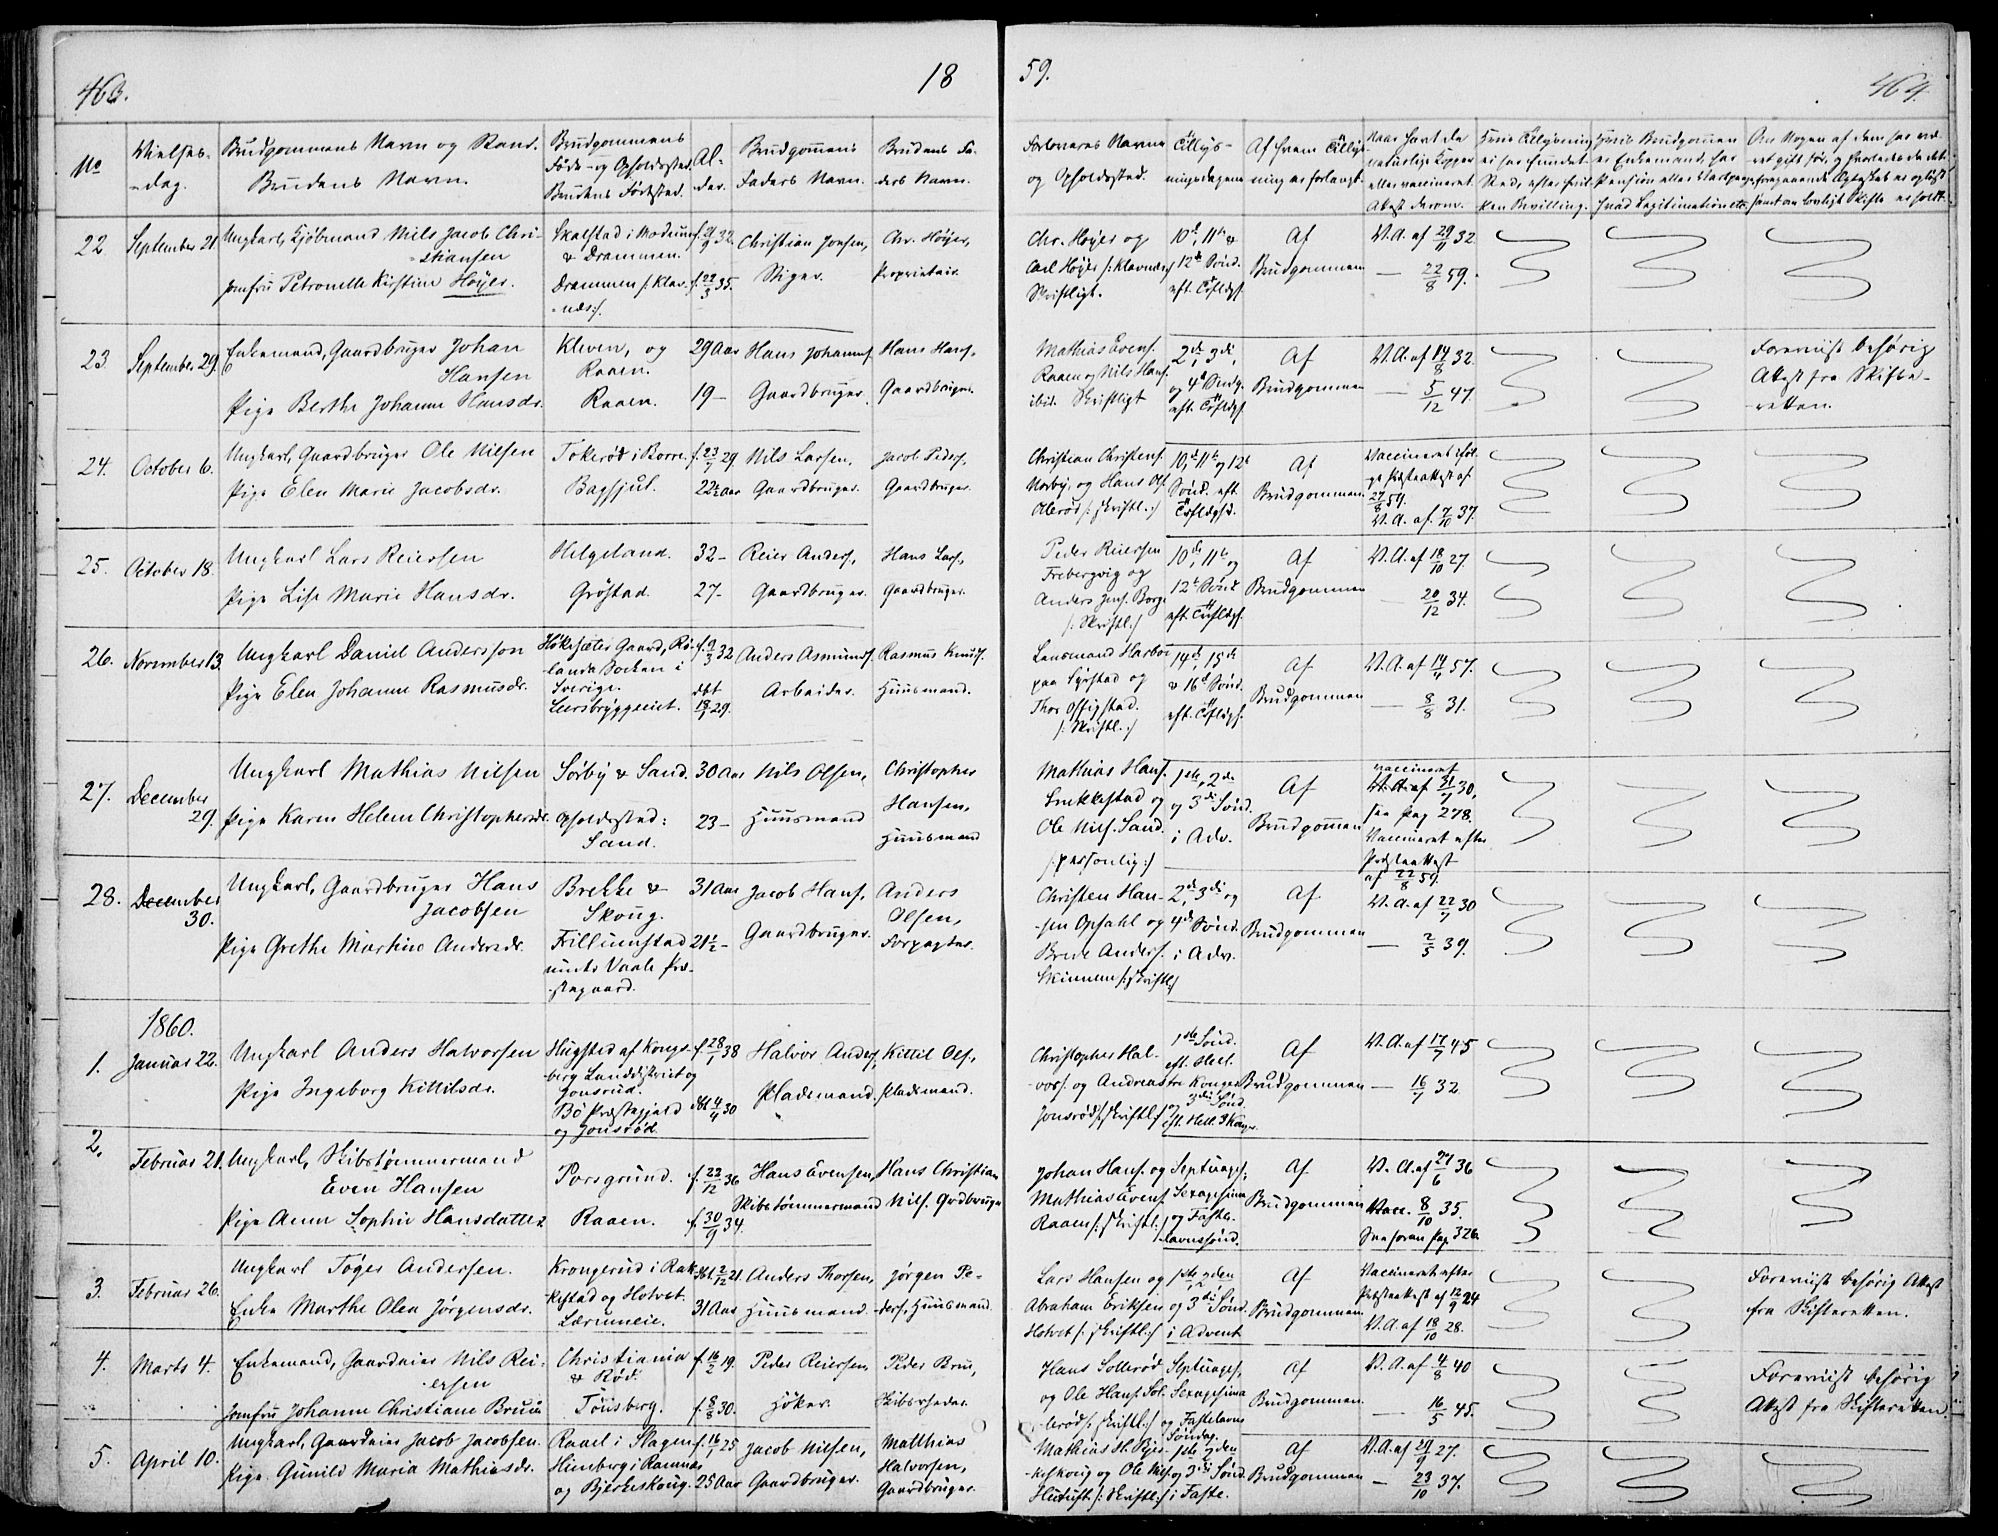 463.
18
No
Vielses-
-dag.
Brudgommens Navn og Stand.
Brudens Navn.
Brudgommens
Føde- og Opholdssted.
Brudens Fødested.
Al-
der.
Brudgommens
Faders Navn.
Brudens Fa-
ders Navn.
22
September 21
Ungkarl, Kjøbmand Nils Jacob Chri-
-stiansen
Jomfru Petronelle Kirstine Høyer.
Skalstad i Modum
& Drammen.
Drammen /: Klav-
-næs:/.
f. 21/9 32.
f. 22/3 35.
Christian Jonsen,
Stiger.
Chr. Høyer,
Proprietair.
23
September 29.
Enkemand, Gaardbruger Johan
Hansen
Pige Berthe Johanne Hansdr.
Kleven, og
Raaen.
Raaen.
29 Aar
19 -
Hans Johannes.
Gaardbruger.
Hans Hans.,
Gaardbruger.
24.
October 6.
Ungkarl, Gaardbruger Ole Nilsen
Pige Elen Marie Jacobsdr.
Tokerød i Borre.
Bagfjul.
f. 23/7 29
22½ Aar
Nils Larsen,
Gaardbruger.
Jacob Peders.,
Gaardbruger.
25.
October 18.
Ungkarl Lars Reiersen
Pige Lise Marie Hansdr.
Helgeland.
Grøstad.
32 -
27 -
Reier Anders.,
Gaardbruger.
Hans Lars.,
Gaardbruger.
26.
November 13.
Ungkarl Daniel Andersson
Pige Elen Johanne Rasmusdr.
Sverige.
dbt
18/7 29.
Anders Asmunds.
Arbeider.
Rasmus Knuds.
Huusmand.
27.
December
29.
Ungkarl Mathias Nilsen
Pige Karen Helene Christophersdr.
Sørby & Sand.
Opholdssted:
Sand.
30 Aar
23 -
Nils Olsen,
Huusmand
Christopher
Hansen,
Huusmand
28.
December
30.
Ungkarl, Gaardbruger Hans
Jacobsen
Pige Grethe Martine Andersdr.
Brekke &
Skoug.
under Vaale Præ-
-stegaard.
31 Aar
21½ -
Jacob Hans.,
Gaardbruger.
Anders
Olsen,
Forpagter.
1860.
1.
Januar 22.
Ungkarl Anders Halvorsen
Pige Ingeborg Kittilsdr.
Hugsted af Kongs-
-berg Landdistrict og
Jonsrud.
Bø Præstegjeld
og Jonsrød.
f. 28/1 38
dbt 4/4 30
Halvor Anders.,
Pladsmand.
Kittil Ols.,
Pladsmand.
2.
Februar 21.
Ungkarl, Skibstømmermand
Even Hansen
Pige Anne Sophie Hansdatter
Porsgrund.
Raaen.
f. 22/12 36
f. 30/9 34.
Hans Evensen,
Skibstømmermand
Hans Christian
Nils. Grdbruger
3.
Februar 26.
Ungkarl Tøger Andersen.
Enke Marthe Olea Jørgensdr.
Krongerud i Rak-
-kestad og Holvet.
31 Aar
Anders Thorsen,
Huusmand.
Jørgen Pe-
-ders., Huusmand.
4.
Marts 4.
Enkemand, Gaardeier Nils Rei-
ersen
Jomfru Johanne Christiane Bruun
Christiania
& Rød.
Tønsberg.
f. 16/2 19.
f. 8/8 30.
Peder Reiersen,
Høker.
Peder Bruu,
Skibsrheder.
5.
April 10.
Ungkarl, Gaardeier Jacob Jacobsen.
Pige Gunild Maria Mathiasdr.
Raael i Slagen
Himberg i Ramnes
og Bjerkeskoug.
f. 16/1 25
25 Aar
Jacob Nilsen,
Gaardbruger.
Matthias
Halvorsen,
Gaardbruger.
59.
464.
Forlovers Navne
og Opholdssted.
Tillys-
ningsdagene
Af hvem Tillys-
ning er forlangt.
Naar havt de
naturlige Kopper
eller vaccineret.
Attest derom.
Hvis Tillysning
ei har fundet
Sted, efter hvil-
ken Bevilling.
Hvis Brudgommen
er Enkemand, har
Om Nogen af dem har væ-
-ret gift før, og hvorledes da det
foregaaende Ægteskab er opløst
samt om lovligt Skifte er holdt.
Chr. Høyer og
Carl Høyer /: Klavnæs
Skriftligt.
10de, 11te &
12te Sønd.
Af
Brudgommen
V. A. af 29/11 32.
— 22/8 59.
Mathias Evens.
Raaen og Nils Hans.
ibid. Skriftligt
2den, 3die,
og 4de Søndg.
Af
Brudgommen
V. A. af 14/8 32.
— 5/12 47.
Foreviist behørig
Attest fra Skifte-
-retten.
Christian Christens.
Norby, og Hans Ols.
Olerød /: skriftl.:/
10de, 11te og 12te
Af
Brudgommen
Vaccineret iføl-
ge Præsteattest af
27/8 59.
V. A. af 7/10 37.
Peder Reiersen
Frebergvig og
Anders Jens. Borge
/: Skriftl.:/
10de, 11te og
12te Sønd.
Af
Brudgommen
V. A. af 18/10 27.
— 20/12 34.
Lensmand Harboe
paa Lystad og
/: Skriftl.:/
14de, 15de
& 16de Sønd.
Af
Brudgommen
V. A. af 14/4 57.
— 8/8 31.
Mathias Hans.
Snekkestad og
Ole Nils. Sand.
/: personlig :/
1ste, 2den
og 3die Sønd.
i Adv.
Af
Brudgommen
vaccineret
V. A. af 31/7 30,
saa pag 278.
Vaccineret efter
Præsteattest
af 22/8 59.
Christen Han-
-sen Opsahl og
Brede Anders.
Skinnem /: skriftl.:/
2den, 3die og
4de Sønd.
i Adv.
Af
Brudgommen
V. A. af 22/7 30
— 2/5 39.
Christopher Hal-
-vors. og Andreas
Jonsrød /: skriftl.:/
1ste Sønd.
eft. Hell.
tre Konger
og 3die Sønd.
eft. Hell. 3 Konger.
Af
Brudgommen
V. A. af 17/7 45
— 16/7 32.
Johan Hans. og
Mathias Evens.
Raaen /: skriftl.:/
Septuages.,
Sexagesima
og Faste-
lavnssønd.
Af
Brudgommen
V. A. af 21/6 36
Vacc. 8/10 35.
See foran pag. 326.
Lars Hansen og
Abraham Eriksen
Holvet /: skriftl.:/
1ste, 2den
og 3die Sønd.
i Advent
Af
Brudgommen
Vaccineret efter
Præsteattest af 12/9 24
V. A. af 18/10 28.
Foreviist behørig Attest
fra Skifteretten.
Hans Sollerød
og Ole Hans. Sol-
-lerød /: skriftl.:/
Septuages.,
Sexagesima
og Fastelavns
Søndag.
Af
Brudgommen.
V. A. af 4/8 40
— 16/5 45.
Foreviist behørig
Attest fra Skifteretten.
Mathias H. Bjer-
-keskoug og Ole Nils.
1ste, 2den
og 3die Sønd.
i Faste.
Af
Brudgommen
V. A. af 29/9 27.
— 23/10 37.